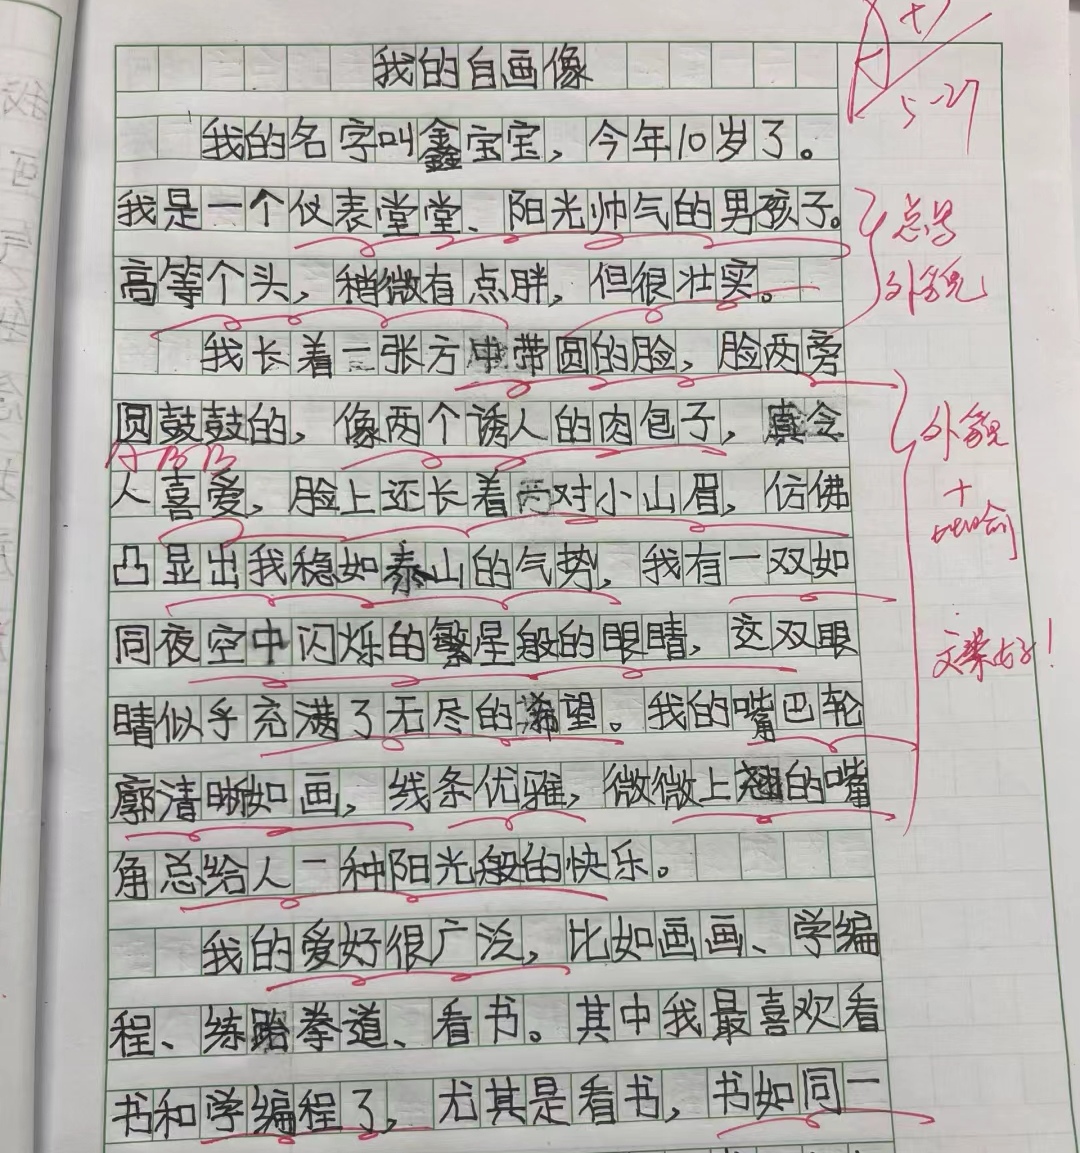 我的自画像
A+
5-27
我的名字叫鑫宝宝，今年10岁了。
我是一个仪表堂堂、阳光帅气的男孩子。
总写
外貌
高等个头，稍微有点胖，但很壮实。
我长着一张方中带圆的脸，脸两旁
圆鼓鼓的，像两个诱人的肉包子，真令
ABB
外貌
+
比喻
人喜爱，脸上还长着两对小山眉，仿佛
凸显出我稳如泰山的气势，我有一双如
同夜空中闪烁的繁星般的眼睛，这双眼
文采好！
睛似乎充满了无尽的希望。我的嘴巴轮
廓清晰如画，线条优雅，微微上翘的嘴
角总给人一种阳光般的快乐。
我的爱好很广泛，比如画画、学编
程、练跆拳道、看书。其中我最喜欢看
书和学编程了，尤其是看书，书如同一